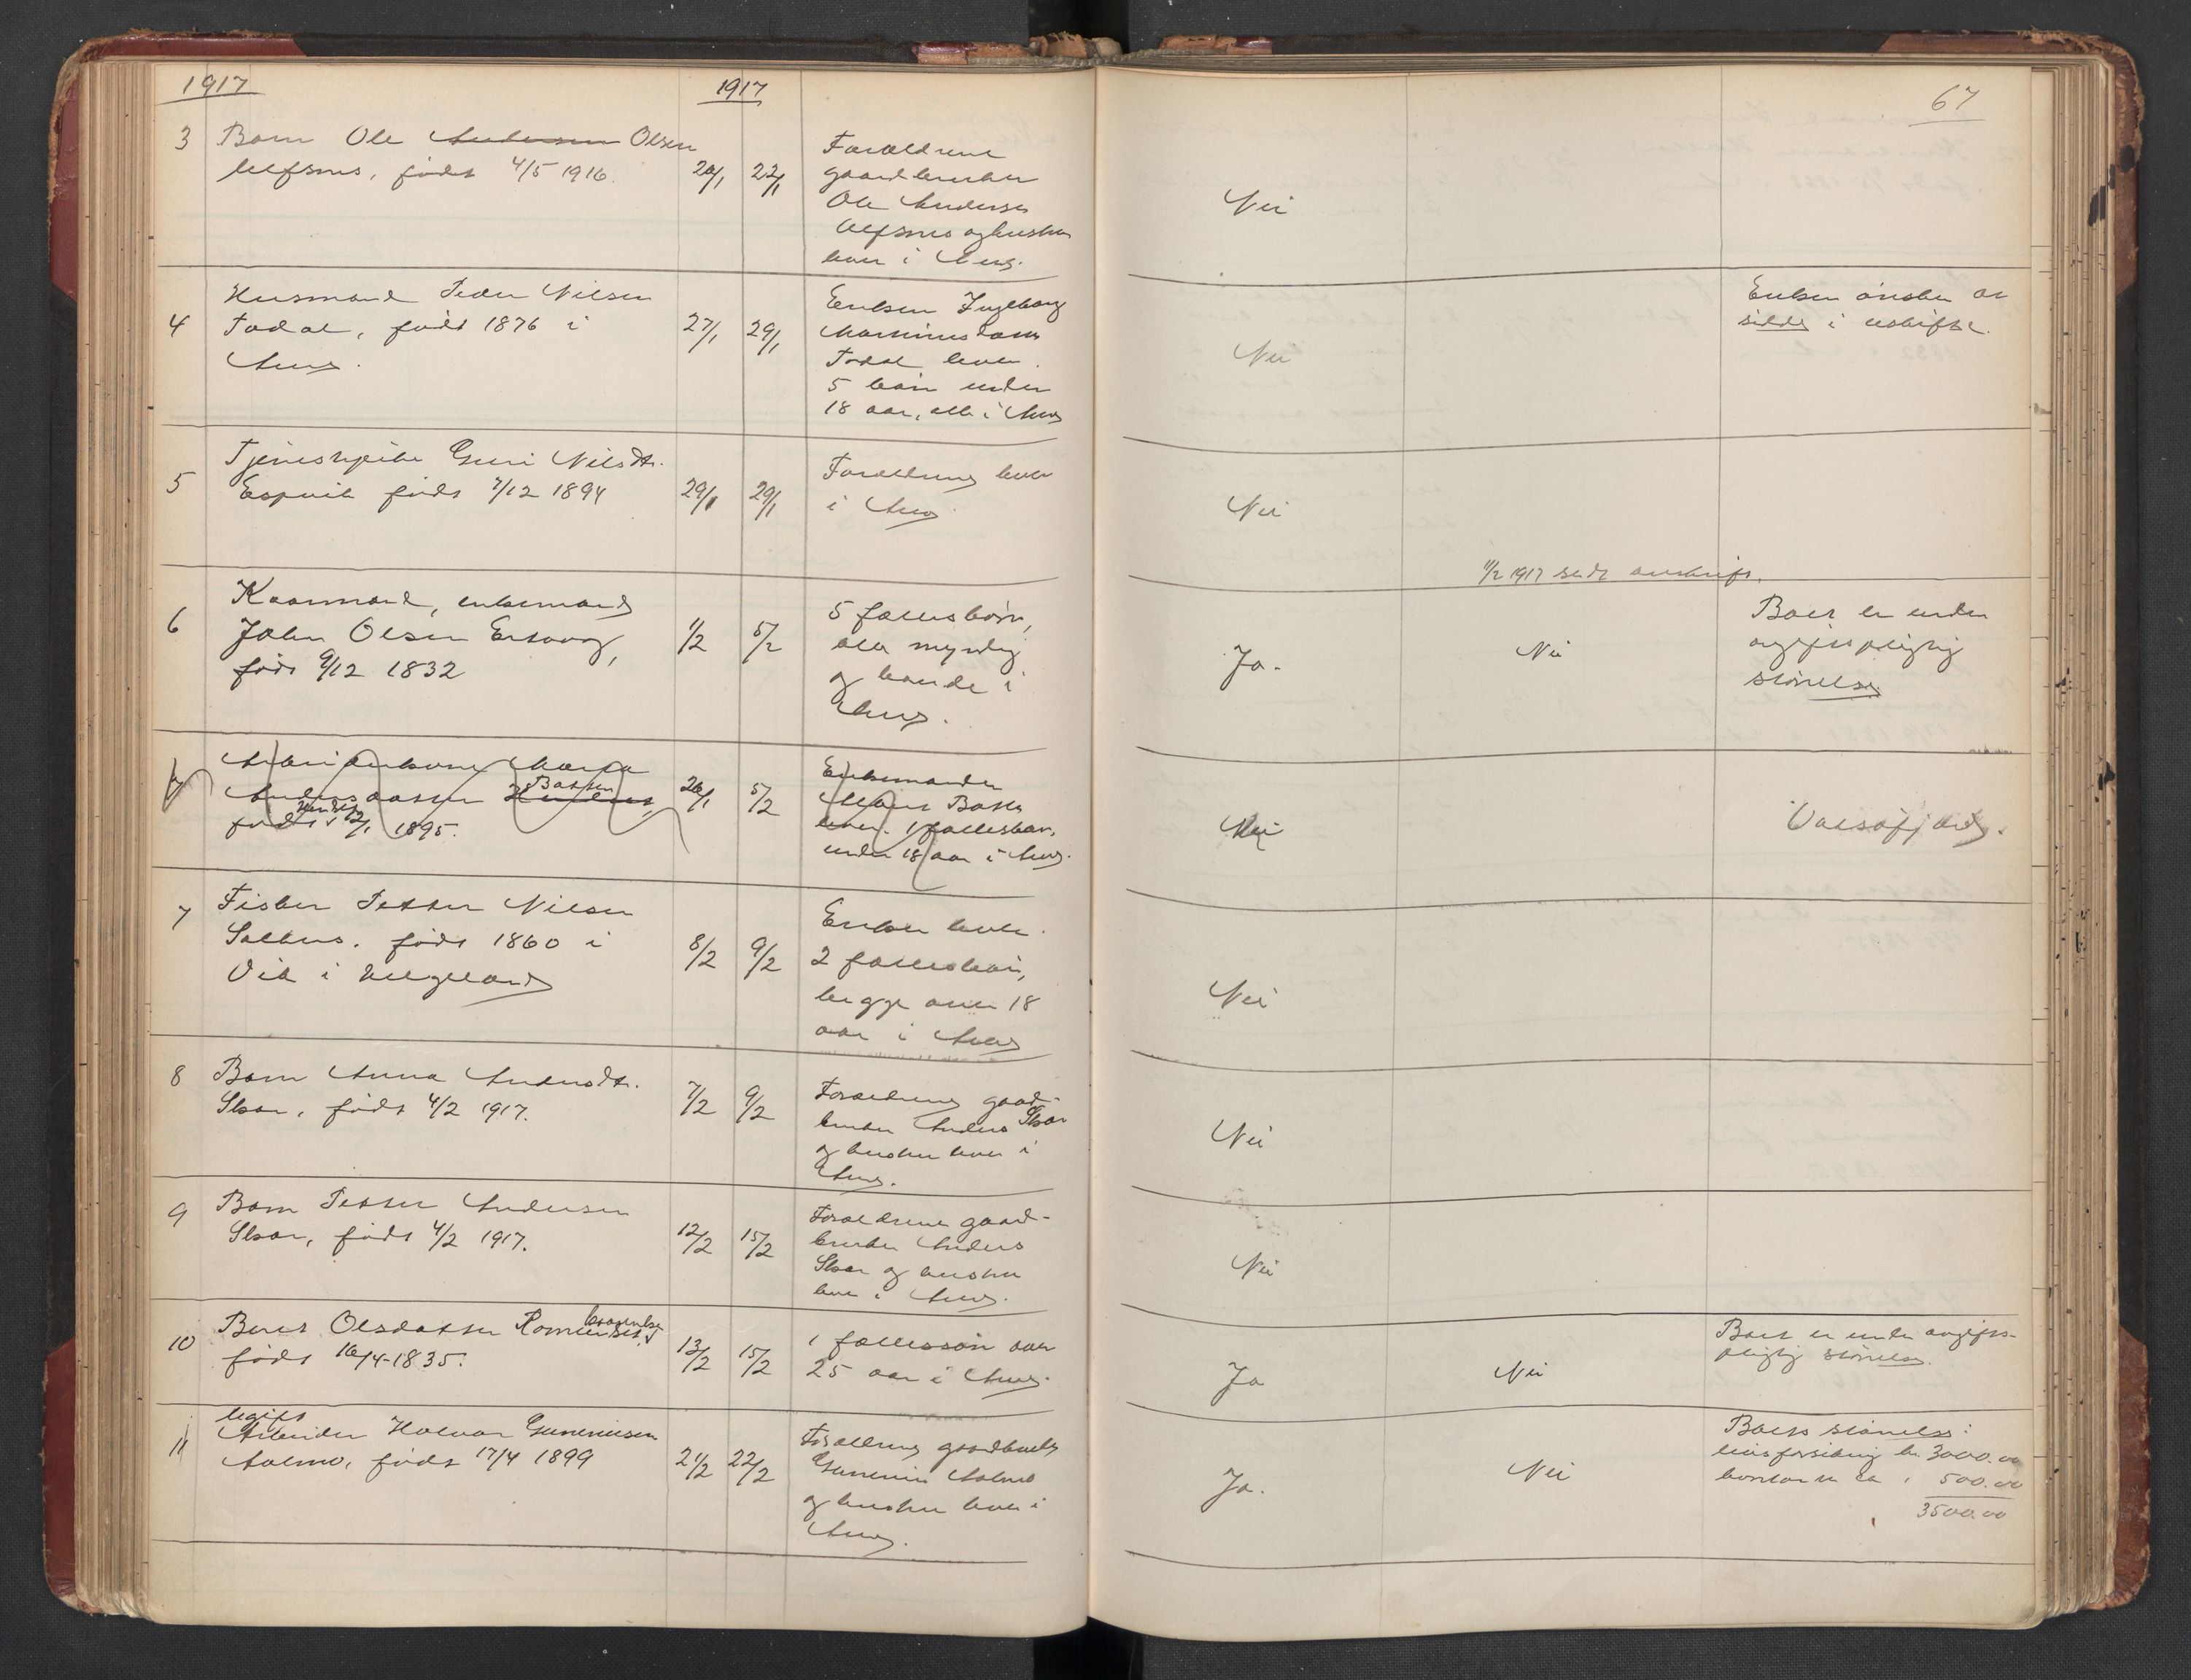 1917
1917
67
3 Barn Ole Andersen Olsen
Ulfsnes, født 4/5 1916.
20/1 22/1
Forældrene
gaardbruker
Ole Andersen
Ulfsnes og hustru
lever i Aure.
Nei
4 Husmand Peder Nilsen
Todal, født 1876 i
Aure.
27/1 29/1
Enken Ingeborg
Todal lever.
5 barn under
18 aar, alle i Aure
Nei
Enken ønsker at
sidde i uskifte.
5 Tjenestepike Guri Nilsdtr.
Espvik født 7/12 1894
29/1 29/1
Forældrene lever
i Aure
Nei
1/2 1917 sendt avskrift.
6 Kaarmand, enkemand
John Olsen
født 9/12 1832
1/2 5/2
5 fællesbørn,
alle myndig
og boende i
Aure.
Ja.
Nei
Boet er under
avgiftspligtig
størrelse
7
Andersdatter Batten
født 12/1 1895.
26/1 5/2
Enkemanden
lever. 1 fællesbarn
under 18 aar i Aure.
Nei
Valsøfjord.
7 Fisker Petter Nilsen
født 1860 i
Vik i Helgeland
8/2 9/2
Enken lever.
2 fællesbørn,
begge over 18
aar i Aure
Nei
8 Barn Anna Andersdtr.
Skar, født 4/2 1917.
7/2 9/2
Forældrene gaard-
bruker Anders Skar
og hustru lever i
Aure.
Nei
9 Barn Petter Andersen
Skar, født 4/2 1917.
12/2 15/2
Forældrene gaard-
bruker Anders
Skar og hustru
lever i Aure.
Nei
kaarenke
10 Beret Olsdatter Romundset,
født 16/4-1835.
13/2 15/2
1 fællessøn over
25 aar i Aure.
Ja
Nei
Boet er under avgifts-
pligtig størrelse.
ugift
11 Arbeider Halvor Gunneriusen
Aalmo, født 17/4 1899
21/2 22/2
Forældrene gaardbruker
Gunnerius Aalmo
og hustru lever i
Aure.
Ja.
Nei
Boets størrelse:
livsforsikring kr 3000.00
kontanter ca " 500.00
3500.00